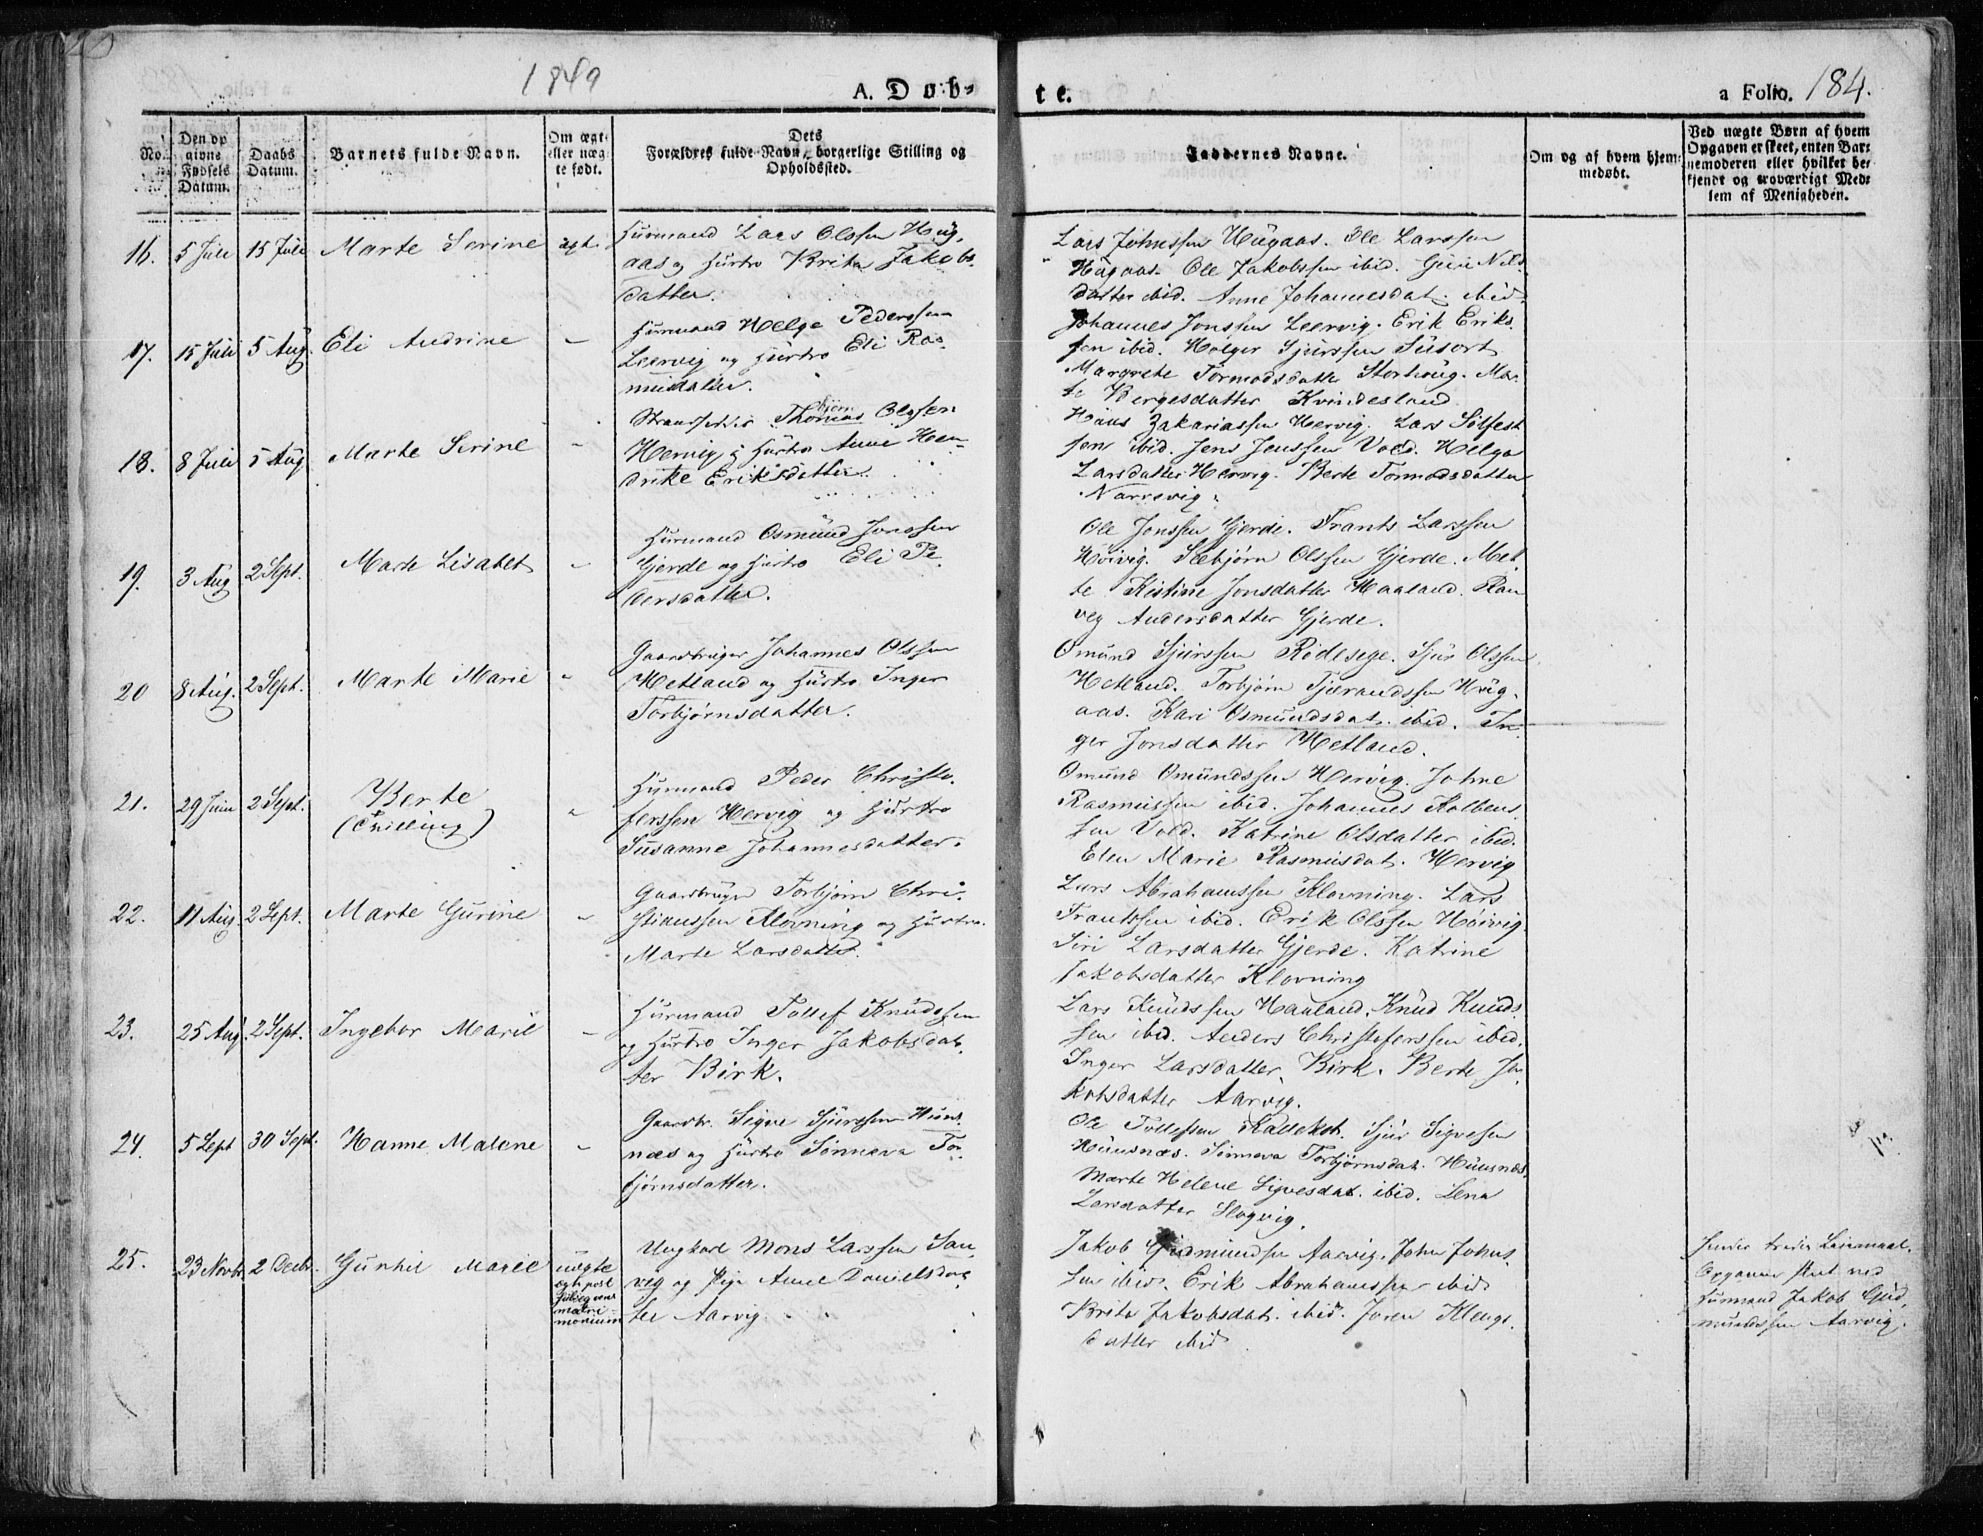 1849
A. Døb-
te.
a Folio. 184.
No.
Den op
givne
Fødsels
Datum.
Daabs
Datum.
Barnets fulde Navn.
Om ægt-
eller uæg-
te født.
Dets
Forældres fulde Navn, borgerlige Stilling og
Opholdssted.
Faddernes Navne.
Om og af hvem hjem-
medøbt.
Ved uægte Børn af hvem
Opgaven er skeet, enten Bar-
nemoderen eller hvilket be-
kjendt og troværdigt Med-
lem af Menigheden.
16. 5 Juli 15 Juli Marte Serine ægt.
Huusmand Lars Olssen Hüg-
aas og Hustro Brita Jakobs-
datter.
Lars Johnssen Hügaas. Ole Larssen
Hügaas. Ole Jakobssen ibid. Guri Nils-
datter ibid. Anne Johannesdat. ibid.
17. 15 Juli 5 Aug. Eli Andrine -
Huusmand Helge Pederssen
Leervig og Hustro Eli Ras-
musdatter.
Johannes Jonssen Leervig. Erik Eriks-
sen ibid. Holger Sjurssen Susort
Margrete Tormodsdatter Storhoug. Mar-
te Bergesdatter Kvindesland
18. 8 Juli 5 Aug Marte Serine -
Strandsidder Thomas Olssen
bjørn
Hervig og Hustro Anne Hen-
drike Eriksdatter.
Hans Zakariassen Hervig. Lars Sølfest
sen ibid. Jens Jenssen Vold. Helga
Larsdatter Hervig. Berte Tormodsdatter
Narrsvig.
19. 3 Aug 2 Sept. Marte Lisabet -
Huusmand Osmund Jonssen
Gjerde og Hustro Eli Pe-
dersdatter.
Ole Jonssen Gjerde. Frants Larssen
Høivig. Sæbjørn Olssen Gjerde. Met-
te Kistine Jonsdatter Haaland. Ran
veg Andersdatter Gjerde.
20 8 Aug. 2 Sept. Marte Marie -
Gaardbruger Johannes Olssen
Hetland og Hustro Inger
Torbjørnsdatter.
Omund Sjurssen Rödesege. Sjur Olssen
Hetland. Torbjørn Tjærandssen Hüg-
aas. Kari Osmundsdat. ibid. In-
ger Jonsdatter Hetland.
21. 29 Juni 2 Sept. Berte
(Tvilling)
-
Huusmand Peder Christo-
ferssen Hervig og Hustro
Susanne Johannesdatter.
Omund Omundssen Hervig. Johne
Rasmussen ibid. Johannes Kolbens-
sen Vold. Katrine Olsdatter ibid.
Elen Marie Rasmusdat. Hervig
22. 11 Aug 2 Sept. Marte Gurine -
Gaardbruger Torbjørn Chri-
stianssen Klovning og Hustro
Marte Larsdatter.
Lars Abrahamssen Klovning. Lars
Frantssen ibid. Erik Olssen Høivig
Siri Larsdatter Gjerde. Katrine
Jakobsdatter Klovning
23. 25 Aug 2 Sept. Ingebor Marie -
Huusmand Tollef Knudssen
og Hustro Inger Jakobsdat-
ter Birk.
Lars Knudssen Haaland. Knud Knuds-
sen ibid. Anders Christoferssen ibid.
Inger Larsdatter Birk. Berte Ja-
kobsdatter Aarvig.
24. 5 Sept 30 Sept. Hanne Malene -
Gaardbr. Sigve Sjurssen Huus-
næs og Hustro Sønneva Tor-
bjørnsdatter.
Ole Tollefsen. Sjur Sigvesen
Huusnæs. Sönneva Torbjørnsdat. Huusnæs.
Marte Helene Sigvesdat. ibid. Lena
Larsdatter Slogvig.
25. 23 Novbr. 2 Decbr. Gunhil Marie uægte
ægte post
subseqvens
matri-
monium
Ungkarl Mons Larssen San-
veg og Pige Anne Danielsdat-
ter Aarvig.
Jakob Gudmundsen Aarvig. John Johns-
sen ibid. Erik Abrahamssen ibid
Brita Jakobsdat. ibid. Joren Klengs-
datter ibid.
Opgaven skeet ved
Huusmand Jakob Gud-
mundssen Aarvig.